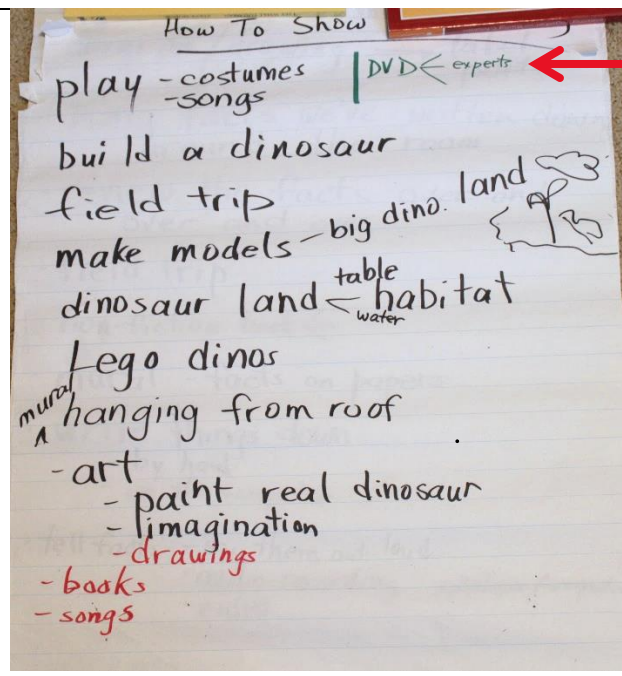 How To Show
play - costumes
- songs
DVD < experts
build a dinosaur
field trip
make models - big dino. land
dinosaur land < table habitat
water
Lego dinos
mural ^ hanging from roof
- art
- paint real dinosaur
- imagination
- drawings
- books
- songs